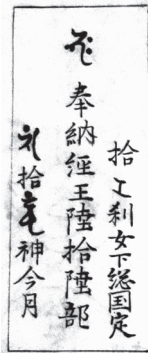 拾 刹女下総国定
奉納經王陸拾陸部
拾 神今月